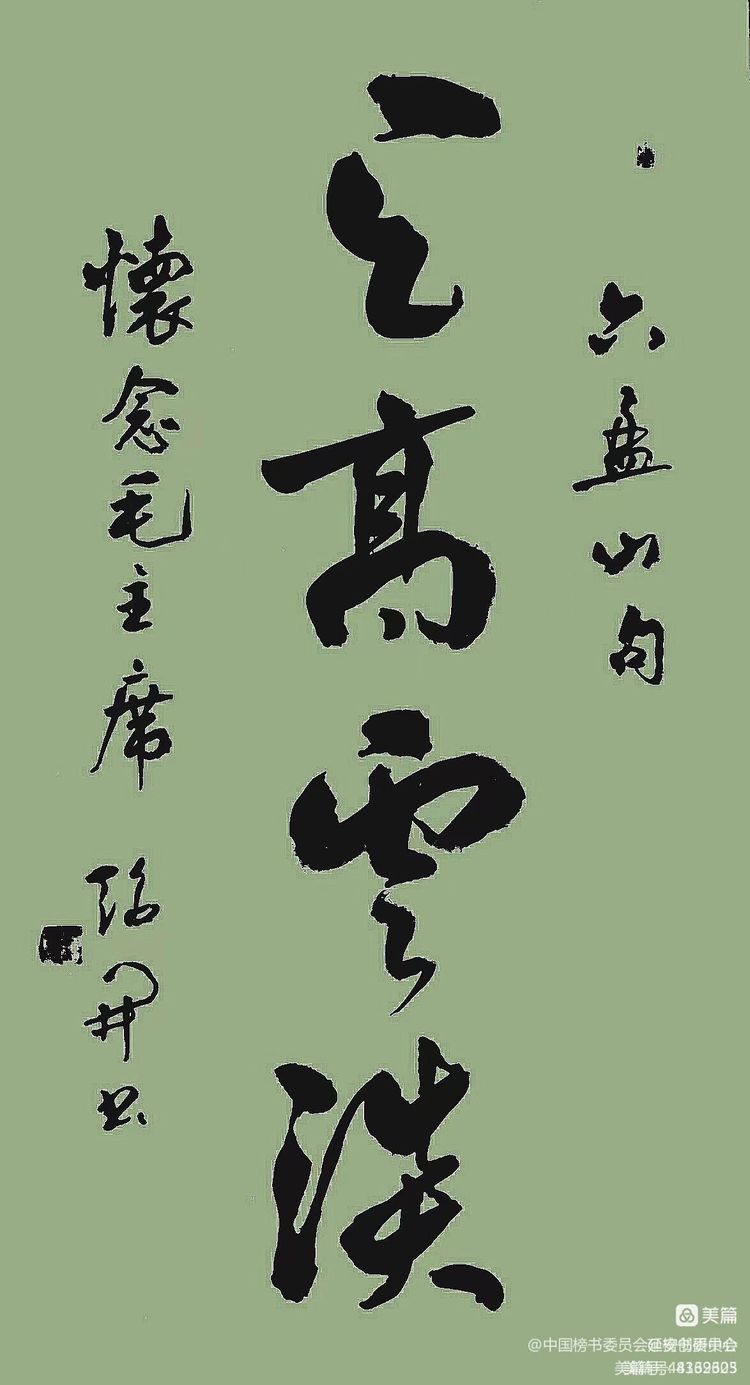 六盘山句
天高云淡
懷念毛主席
书
美篇
@中国榜书委员会
美篇号